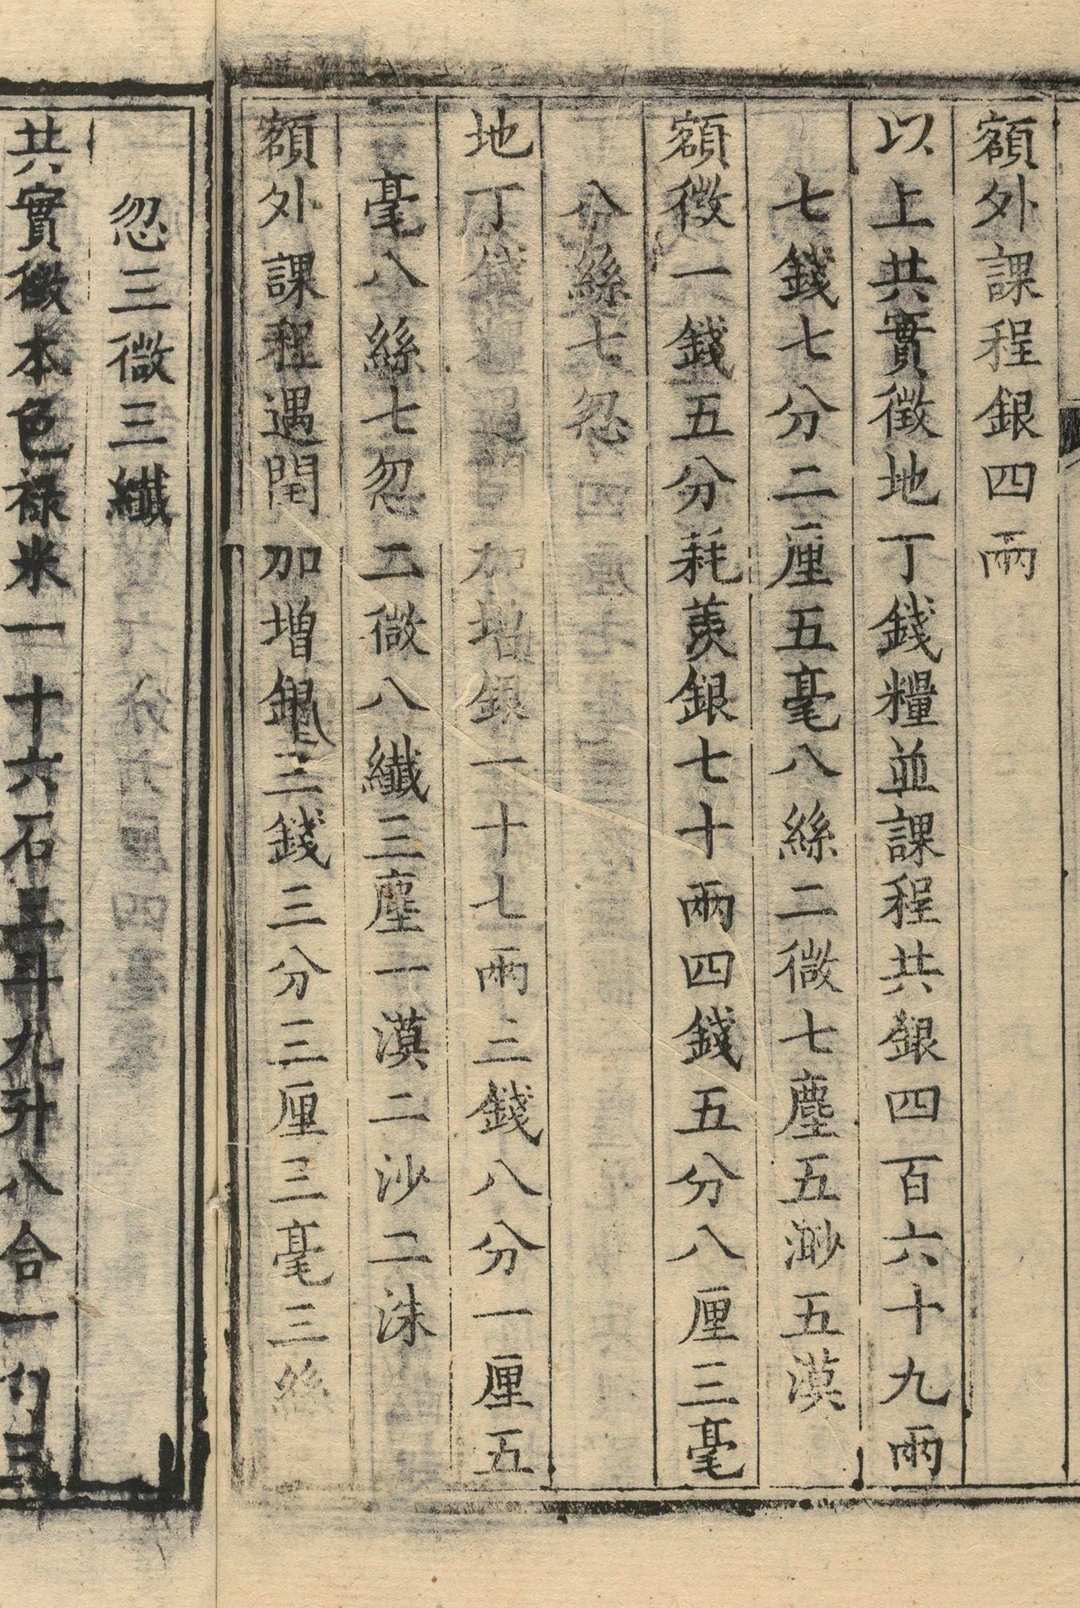 額外課程銀四兩
以上共實徵地丁錢糧並課程共銀四百六十九兩
七錢七分二厘五毫八絲二微七塵五渺五漠
額徵一錢五分耗羨銀七十兩四錢五分八厘三毫
八絲七忽
地丁錢糧遇閏加增銀一十七兩三錢八分一厘五
毫八絲七忽二微八纖三塵一漠二沙二洙
額外課程遇閏加增銀三錢三分三厘三毫三絲
忽三微三纖
共實徵本色祿米一十六石三斗九升八合一勺